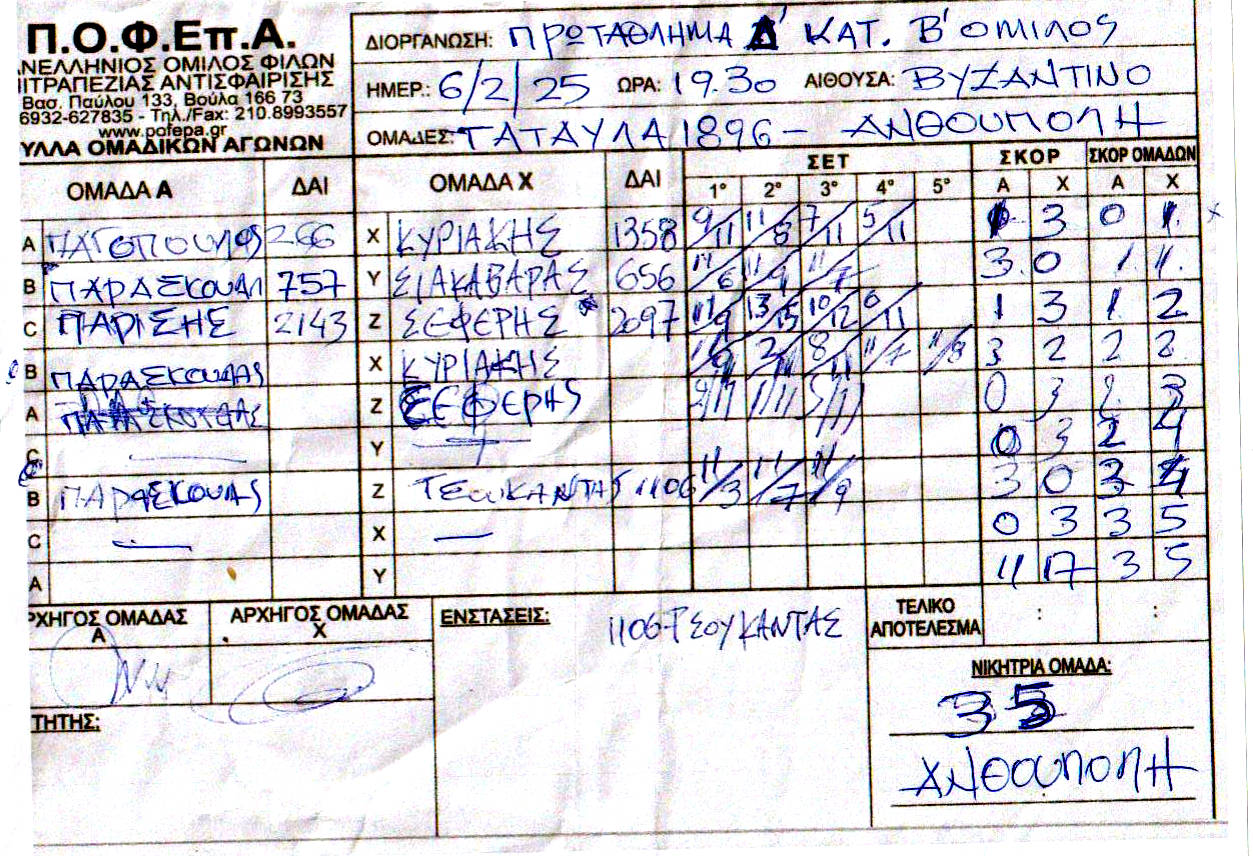 Π.Ο.Φ.Επ.Α.
ΝΕΛΛΗΝΙΟΣ ΟΜΙΛΟΣ ΦΙΛΩΝ
ΙΤΡΑΠΕΖΙΑΣ ΑΝΤΙΣΦΑΙΡΙΣΗΣ
Βασ. Παύλου 133, Βούλα 166 73
6932-627835 - Τηλ./Fax: 210.8993557
www.pofepa.gr
ΥΛΛΑ ΟΜΑΔΙΚΩΝ ΑΓΩΝΩΝ
ΔΙΟΡΓΑΝΩΣΗ: ΠΡΩΤΑΘΛΗΜΑ Δ' ΚΑΤ. Β' ΟΜΙΛΟΣ
ΗΜΕΡ.: 6/2/25 ΩΡΑ: 19.30 ΑΙΘΟΥΣΑ: ΒΥΖΑΝΤΙΝΟ
ΟΜΑΔΕΣ: ΤΑΤΑΥΛΑ 1896 - ΑΝΘΟΥΠΟΛΗ
ΟΜΑΔΑ Α ΔΑΙ ΟΜΑΔΑ Χ ΔΑΙ ΣΕΤ ΣΚΟΡ ΣΚΟΡ ΟΜΑΔΩΝ
1° 2° 3° 4° 5° Α Χ Α Χ
Α ΠΑΓΟΠΟΥΛΟΣ 266 Χ ΚΥΡΙΑΚΗΣ 1358 9/11 11/8 7/11 5/11 1 3 0 1
Β ΠΑΡΑΣΚΟΥΑΣ 757 Υ ΣΙΑΚΑΒΑΡΑΣ 656 11/6 11/9 11/7 3 0 1 1
C ΠΑΡΙΣΗΣ 2143 Ζ ΣΕΦΕΡΗΣ 2097 11/9 13/15 10/12 6/11 1 3 1 2
Β ΠΑΡΑΣΚΟΥΑΣ Χ ΚΥΡΙΑΚΗΣ 2/11 8/11 11/7 11/8 3 2 2 2
Α Ζ ΣΕΦΕΡΗΣ 0 3 2 3
C — Υ — 0 3 2 4
Β ΠΑΡΑΣΚΟΥΑΣ Ζ ΤΣΟΥΚΑΝΤΑΣ 1106 11/3 11/7 11/9 3 0 3 4
C — Χ — 0 3 3 5
Α Υ 11 17 3 5
ΡΧΗΓΟΣ ΟΜΑΔΑΣ Α ΑΡΧΗΓΟΣ ΟΜΑΔΑΣ Χ ΕΝΣΤΑΣΕΙΣ: 1106-ΤΣΟΥΚΑΝΤΑΣ ΤΕΛΙΚΟ ΑΠΟΤΕΛΕΣΜΑ : :
ΝΙΚΗΤΡΙΑ ΟΜΑΔΑ:
ΤΗΤΗΣ:
3 5
ΑΝΘΟΥΠΟΛΗ